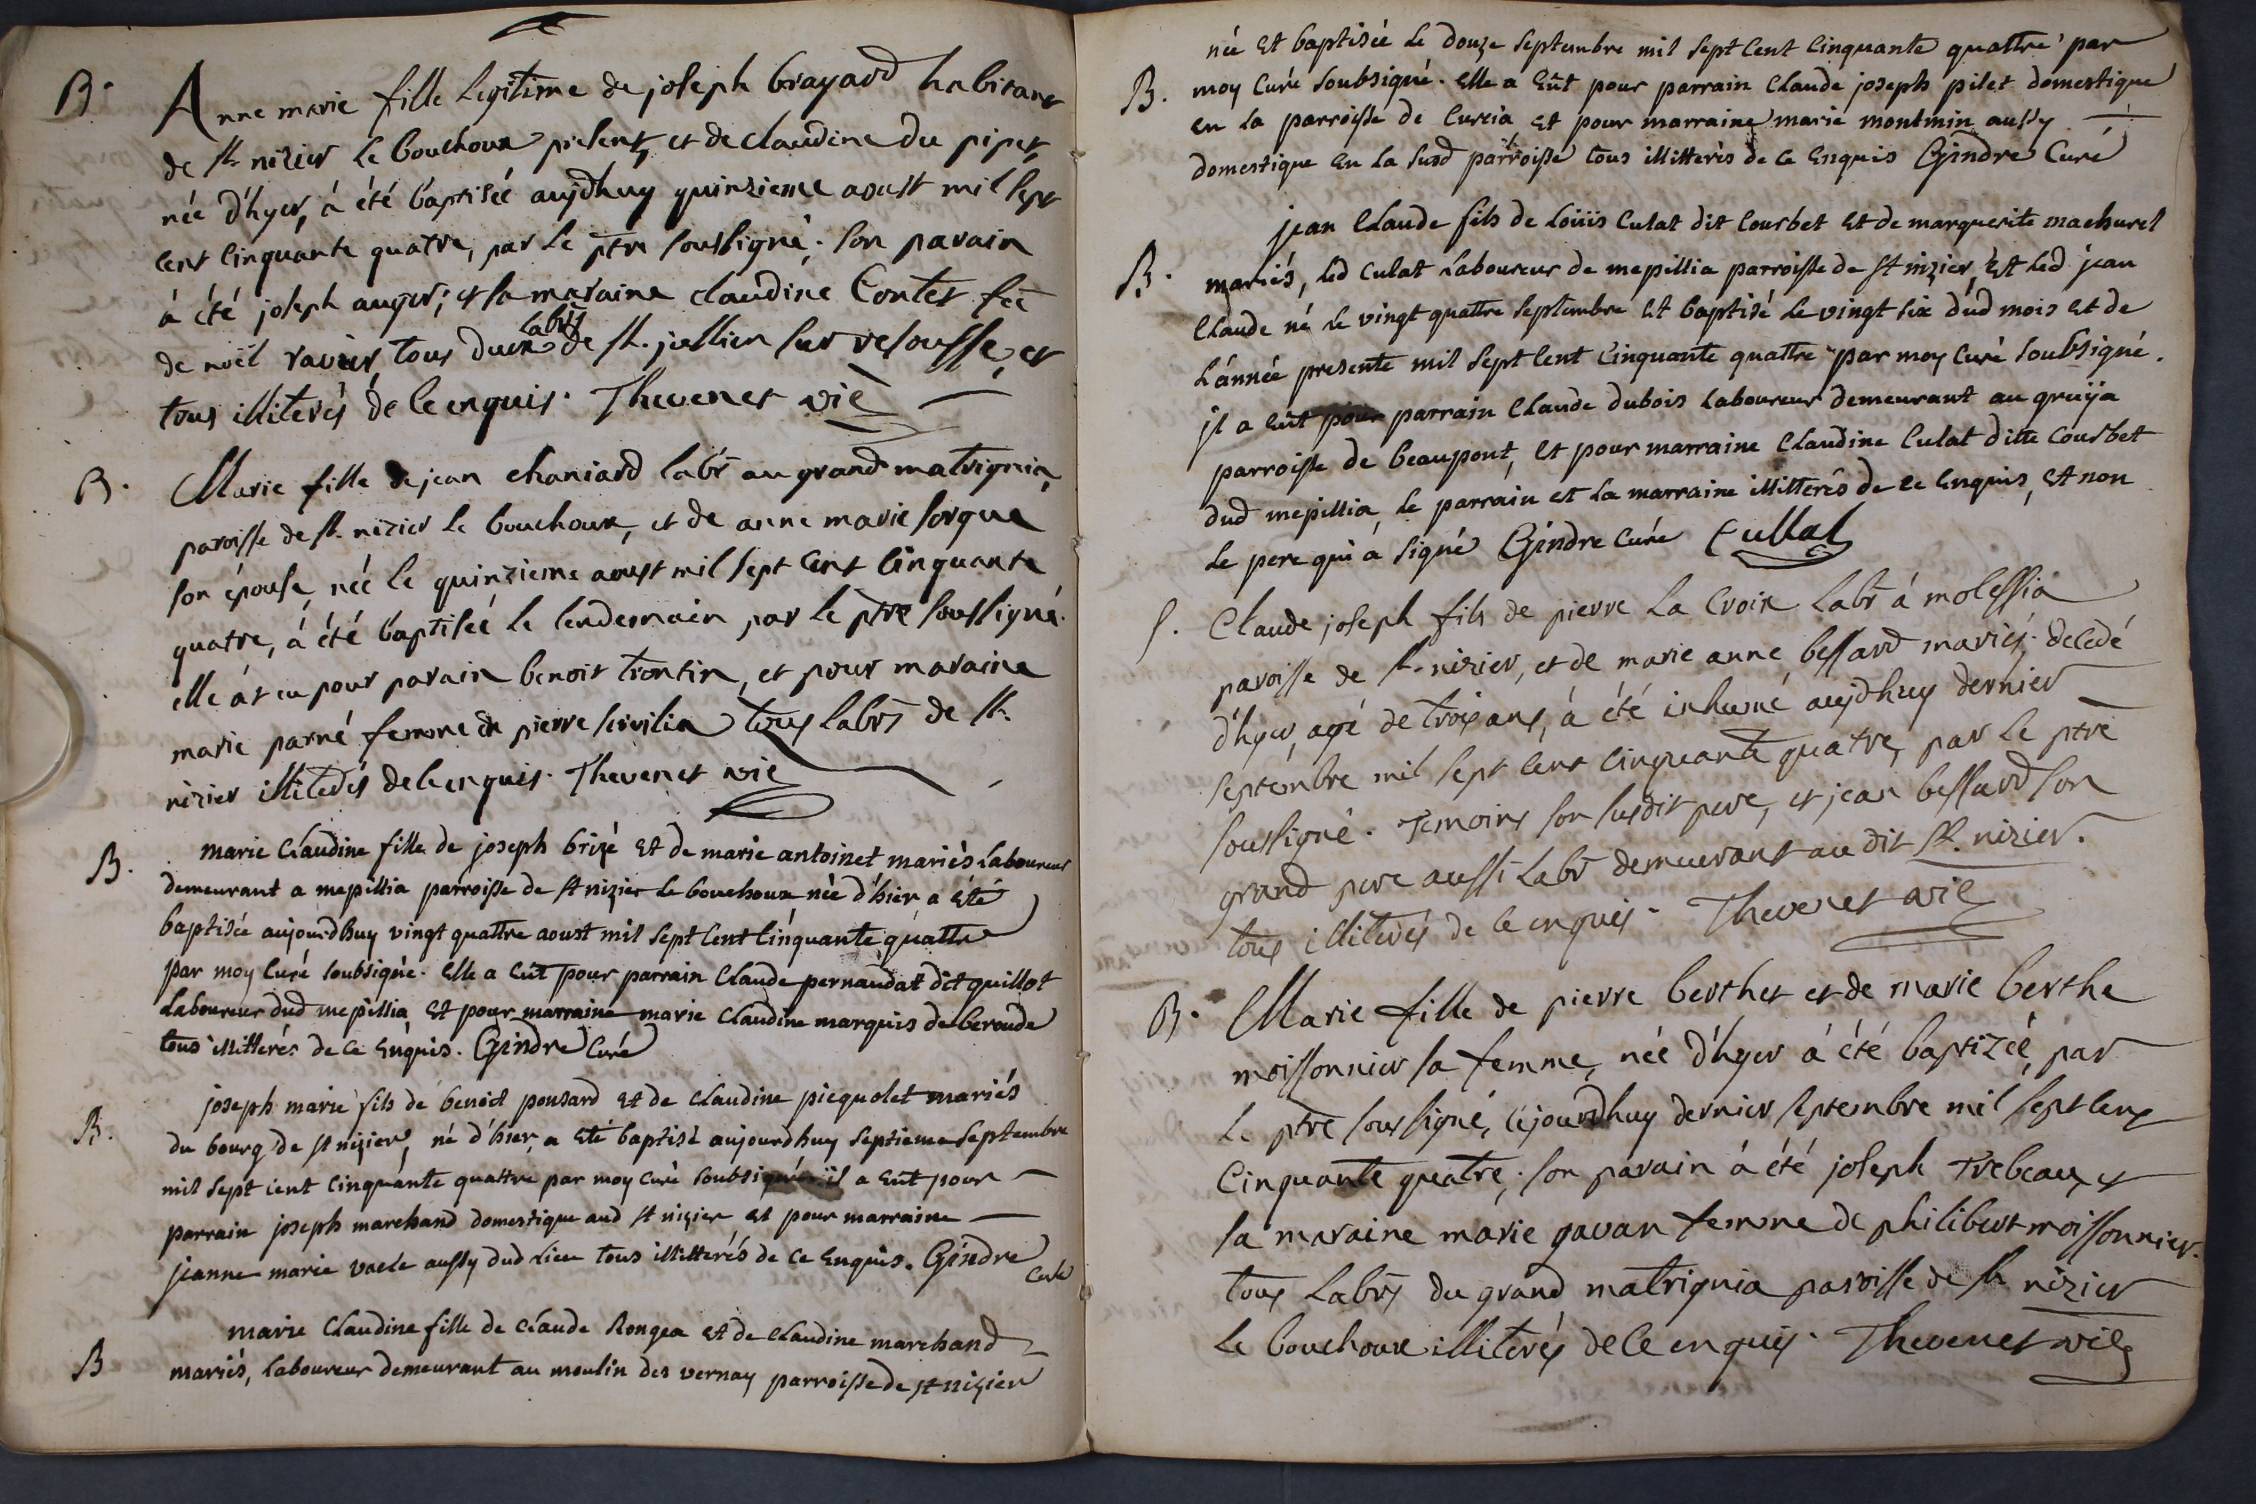 B.
Anne marie fille legitime de joseph brayard habitant
de st. nizier le bouchoux present, et de claudine du pipet,
née d'hyer, á été baptisée aujdhuy quinzieme aoust mil sept
cent cinquante quatre, par le ptre soussigné. son parain
á été joseph auger; et sa maraine claudine Contet fe
de noël ravier, tous deux labrs de st. jullien sur resousse, et
tous illiterés de ce enquis. Thevenet vic
B.
Marie fille de jean chaniard labr au grand matrignia,
paroisse de st. nizier le bouchoux, et de anne marie sorgue
son épouse, née le quinzieme aoust mil sept cent cinquante
quatre, á été baptisée le lendemain par le ptre soussigné.
elle at eu pour parain benoit trontin, et pour maraine
marie parné femme de pierre servilia tous labrs de st.
nizier illiterés de ce enquis. Thevenet vic
B.
marie Claudine fille de joseph brizé et de marie antoinet mariés Laboureur
demeurant a mepillia parroisse de st nizier le bouchoux née d'hier a été
baptisée aujourdhuy vingt quattre aoust mil sept cent cinquante quattre
par moy curé soubsigné. Elle a eut pour parrain Claude pernaudat dit quillot
Laboureur dud mepillia et pour marraine marie Claudine marquis de beroude
tous illitterés de ce enquis. Gindre Curé
B.
joseph marie fils de benoit ponsard et de claudine picquolet mariés
du bourg de st nizier, né d'hier, a été baptisé aujourdhuy septieme septembre
mil sept cent cinquante quattre par moy curé soubsigné il a eut pour
parrain joseph marchand domestique aud st nizier et pour marraine
jeanne marie vacle aussy dud lieu tous illitterés de ce enquis. Gindre
Curé
B
marie Claudine fille de claude Rongea et de claudine marchand
mariés, laboureur demeurant au moulin des vernay parroisse de st nizier
née et baptisée le douze septembre mil sept cent cinquante quattre par
B.
moy curé soubsigné. Elle a eut pour parrain Claude joseph pilet domestique
en la parroisse de curcia et pour marraine marie montmin aussy
domestique en la susd parroisse tous illitterés de ce enquis Gindre Curé
jean Claude fils de Loüis Culat dit Courbet et de marguerite machuret
B.
mariés, led Culat laboureur de mepillia parroisse de st nizier, et led jean
Claude né le vingt quattre septembre et baptisé le vingt six dud mois et de
L'année presente mil sept cent cinquante quattre par moy curé soubsigné.
jl a eut pour parrain Claude dubois laboureur demeurant au gruÿa
parroisse de beaupont, et pour marraine Claudine Culat ditte courbet
dud mepillia, le parrain et la marraine illitterés de ce enquis, et non
le pere qui a signé Gindre Curé Cullat
S.
Claude joseph fils de pierre La Croix Labr á molessia
paroisse de st. nizier, et de marie anne bessard mariés; decedé
d'hyer, agé de trois ans, á été inhumé aujdhuy dernier
septembre mil sept cent cinquante quatre, par le ptre
soussigné. Temoins son susdit pere, et jean bessard son
grand pere aussi Labr demeurant au dit st. nizier.
tous illiterés de ce enquis. Thevenet vic
B.
Marie fille de pierre berthet et de marie berthe
moissonnier sa femme, née d'hyer á été baptizée, par
le ptre soussigné, cejourdhuy dernier septembre mil sept cent
Cinquante quatre; son parain á été joseph Trebeau, et
sa maraine marie gavan femme de philibert moissonnier.
tous Labrs du grand matrignia paroisse de st nizier
le bouchoux illiterés de ce enquis. Thevenet vic